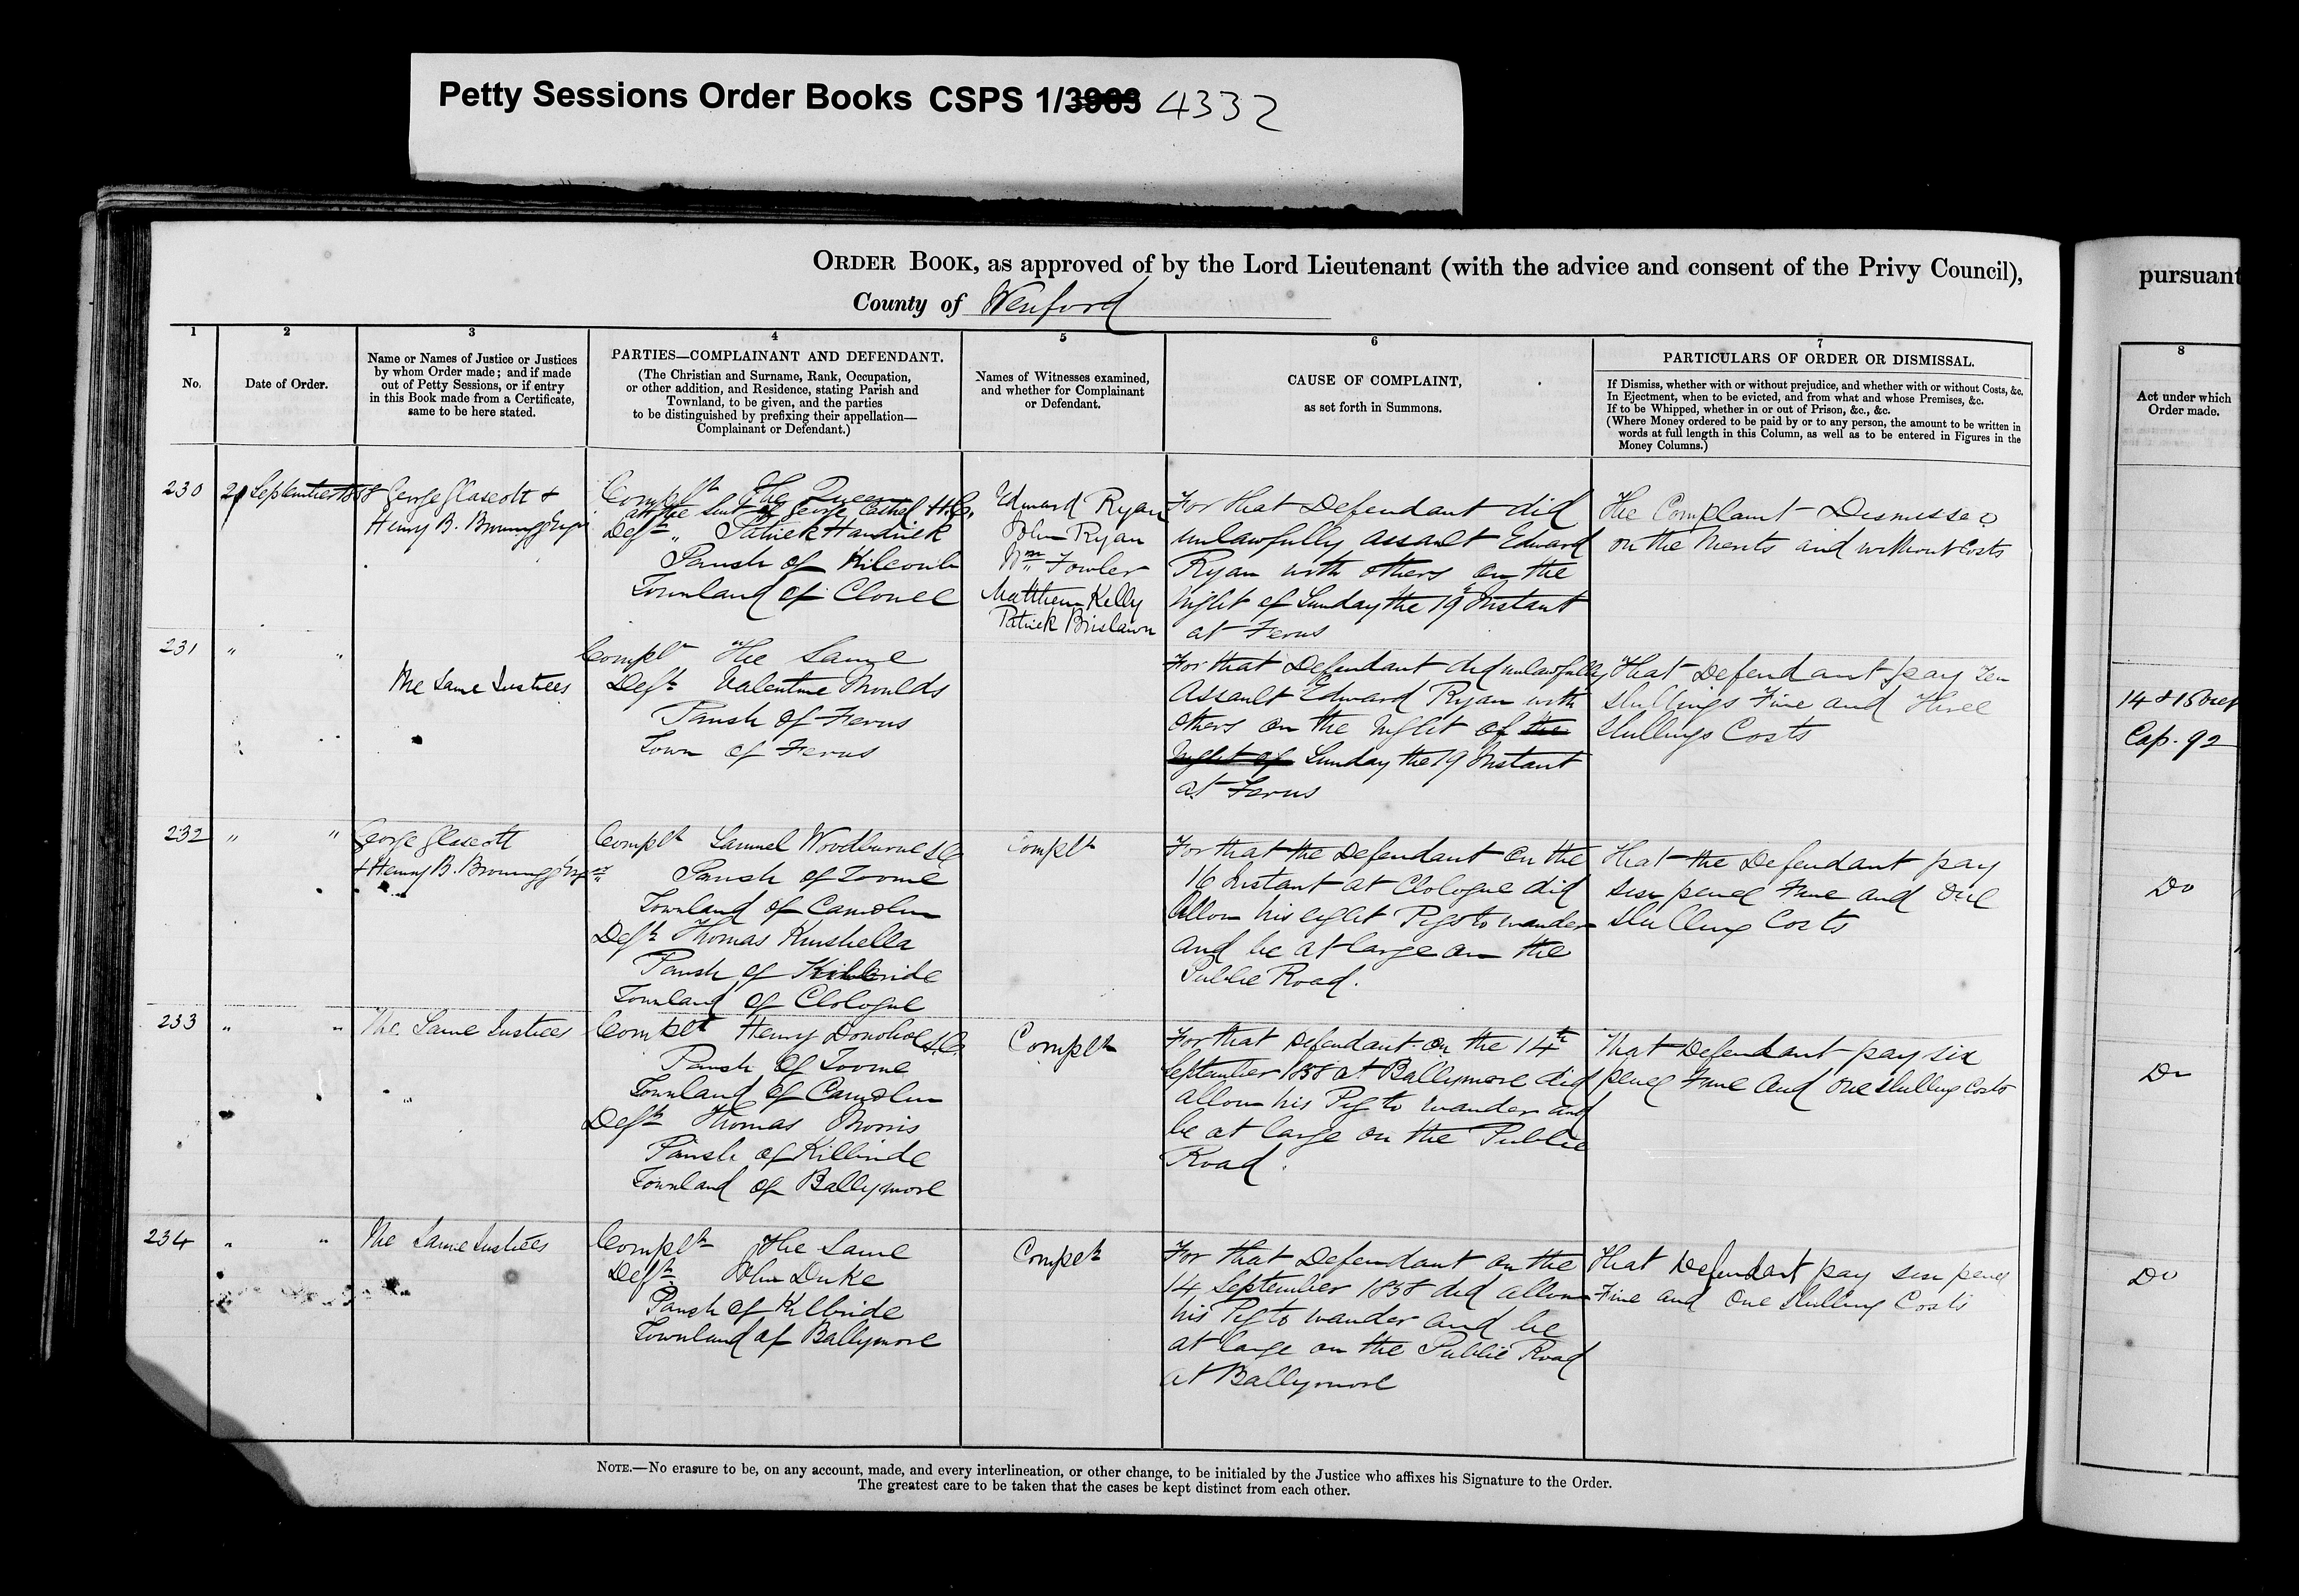 Petty Sessions Order Books CSPS 1/3963 4332
ORDER BOOK, as approved of by the Lord Lieutenant (with the advice and consent of the Privy Council),
pursuant
County of Wexford
1
No.
2
Date of Order.
3
Name or Names of Justice or Justices
by whom Order made; and if made
out of Petty Sessions, or if entry
in this Book made from a Certificate,
same to be here stated.
4
PARTIES—COMPLAINANT AND DEFENDANT.
(The Christian and Surname, Rank, Occupation,
or other addition, and Residence, stating Parish and
Townland, to be given, and the parties
to be distinguished by prefixing their appellation—
Complainant or Defendant.)
5
Names of Witnesses examined,
and whether for Complainant
or Defendant.
6
CAUSE OF COMPLAINT,
as set forth in Summons.
7
PARTICULARS OF ORDER OR DISMISSAL.
If Dismiss, whether with or without prejudice, and whether with or without Costs, &c.
In Ejectment, when to be evicted, and from what and whose Premises, &c.
If to be Whipped, whether in or out of Prison, &c., &c.
(Where Money ordered to be paid by or to any person, the amount to be written in
words at full length in this Column, as well as to be entered in Figures in the
Money Columns.)
8
Act under which
Order made.
230
September 1858
George Glascott &
Henry B.
Complt The Queen
at the Suit of George H.C.
Deft " Patrick Handrick
Parish of Kilcomb
Townland of Clonee
Edward Ryan
John Ryan
Wm Fowler
Matthew Kelly
Patrick Brislawn
For that Defendant did
unlawfully assault Edward
Ryan with others on the
night of Sunday the 19th Instant
at Ferns
The Complaint Dismissed
on the Merits and without Costs
231
" "
The Same Justices
Complt The Same
Deft Valentine Moulds
Parish of Ferns
Town of Ferns
For that Defendant did unlawfully
Assault Edward Ryan with
others on the Night of the
Night of Sunday the 19 Instant
at Ferns
That Defendant pay Ten
Shillings Fine and Three
Shillings Costs
14 & 15 Vict
Cap. 92
232
" "
George Glascott
& Henry B.
Complt Samuel Woodburne S.C.
Parish of Toome
Townland of Camolin
Deft Thomas Kinshella
Parish of Kilbride
Townland of Clologue
Complt
For that the Defendant on the
16 Instant at Clologue did
Allow his eight Pigs to wander
and be at large on the
Public Road.
That the Defendant pay
six pence Fine and one
Shilling Costs
Do
233
" "
The Same Justices
Complt Henry Donohoe S.C.
Parish of Toome
Townland of Camolin
Deft Thomas Morris
Parish of Kilbride
Townland of Ballymore
Complt
For that Defendant on the 14th
September 1858 at Ballymore did
allow his Pig to wander and
be at large on the Public
Road.
That Defendant pay six
pence Fine and one shilling costs
Do
234
" "
The Same Justices
Complt The Same
Deft John Duke
Parish of Kilbride
Townland of Ballymore
Complt
For that Defendant on the
14 September 1858 did allow
his Pig to wander and be
at large on the Public Road
at Ballymore
That Defendant pay six pence
Fine and One Shilling Costs
Do
NOTE.—No erasure to be, on any account, made, and every interlineation, or other change, to be initialed by the Justice who affixes his Signature to the Order.
The greatest care to be taken that the cases be kept distinct from each other.